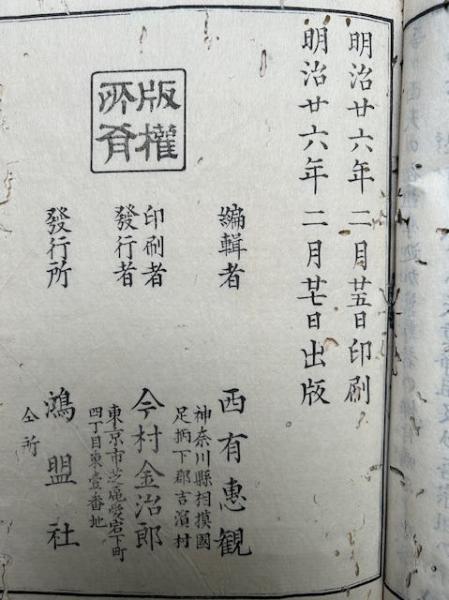 明治廿六年二月廿五日印刷
明治廿六年二月廿七日出版
版權
所有
編輯者
神奈川縣相摸國
足柄下郡吉濱村
西有惠観
印刷者
發行者
東京市芝區愛宕下町
四丁目東壹番地
今村金治郎
發行所
鴻盟社
仝所